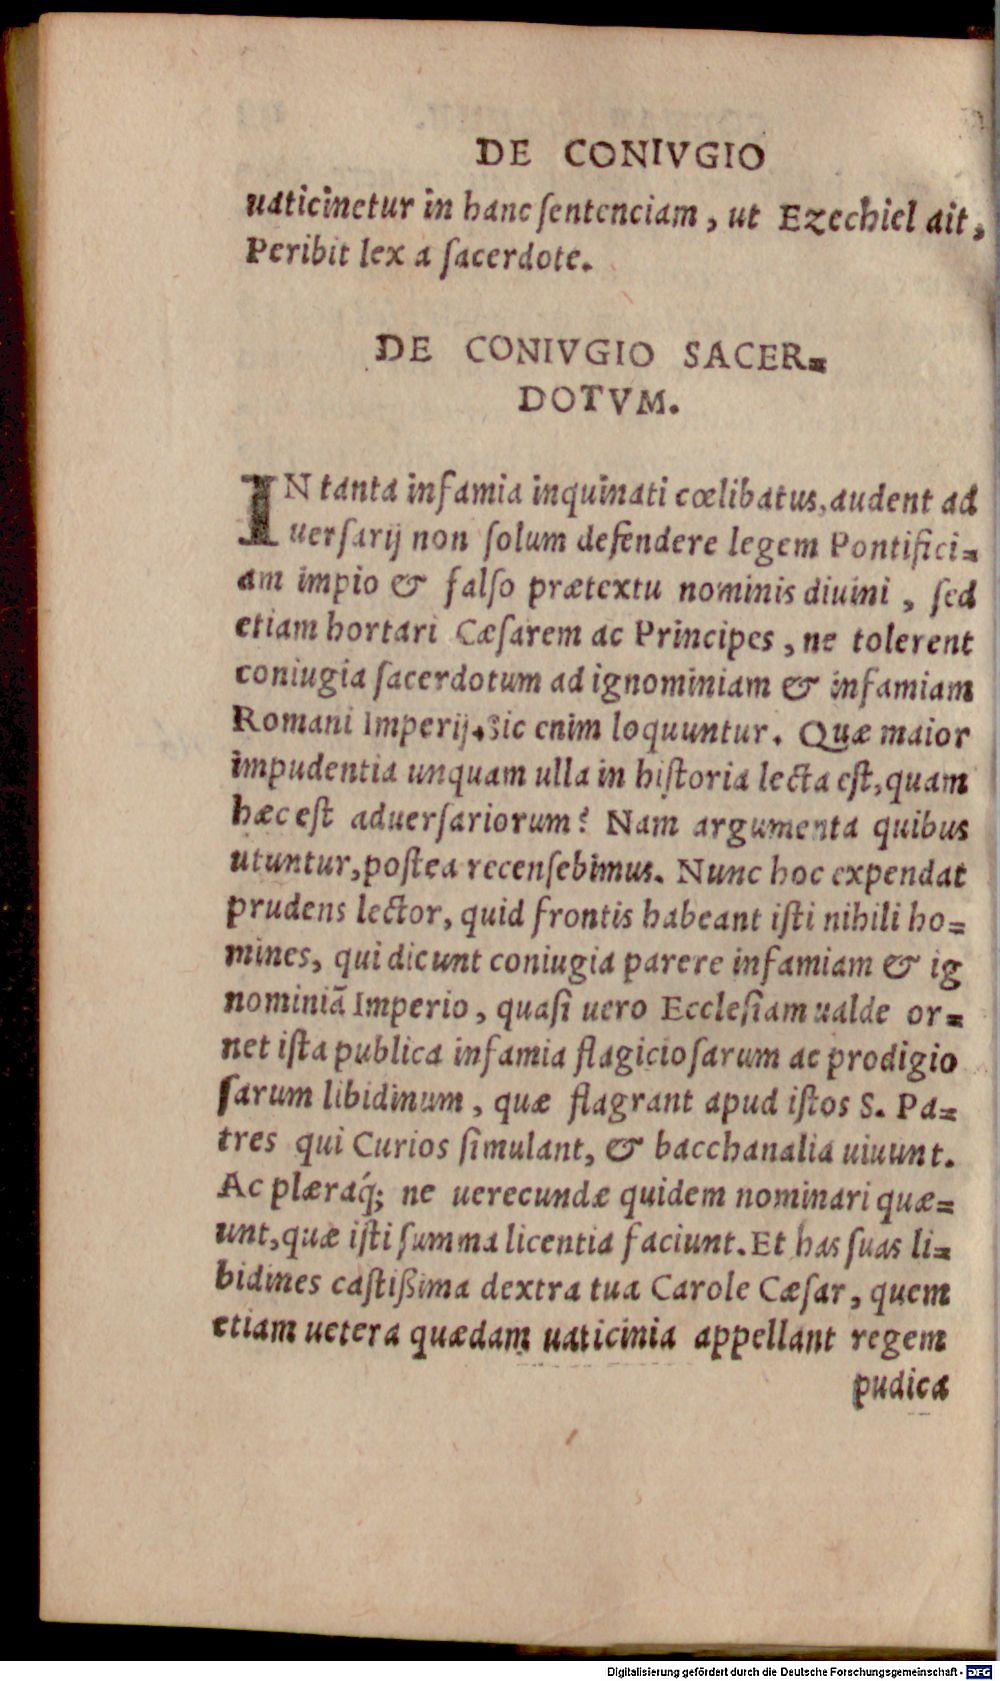 DE CONIVGIO
uaticinetur in hanc ſentenciam, ut Ezechiel ait,
Peribit lex a ſacerdote.
DE CONIVGIO SACER=
DOTVM.
IN tanta infamia inquinati cœlibatus, audent ad
uerſarij non ſolum defendere legem Pontifici=
am impio & falſo prætextu nominis diuini, ſed
etiam hortari Cæſarem ac Principes, ne tolerent
coniugia ſacerdotum ad ignominiam & infamiam
Romani Imperij. Sic enim loquuntur. Quæ maior
impudentia unquam ulla in hiſtoria lecta eſt, quam
hæc eſt aduerſariorum? Nam argumenta quibus
utuntur, poſtea recenſebimus. Nunc hoc expendat
prudens lector, quid frontis habeant iſti nihili ho=
mines, qui dicunt coniugia parere infamiam & ig
nominiā Imperio, quaſi uero Eccleſiam ualde or=
net iſta publica infamia flagicioſarum ac prodigio
ſarum libidinum, quæ flagrant apud iſtos S. Pa=
tres qui Curios ſimulant, & bacchanalia uiuunt.
Ac plæraq́; ne uerecundæ quidem nominari quæ=
unt, quæ iſti ſumma licentia faciunt. Et has ſuas li=
bidines caſtiſsima dextra tua Carole Cæſar, quem
etiam uetera quædam uaticinia appellant regem
pudica
Digitalisierung gefördert durch die Deutsche Forschungsgemeinschaft - DFG